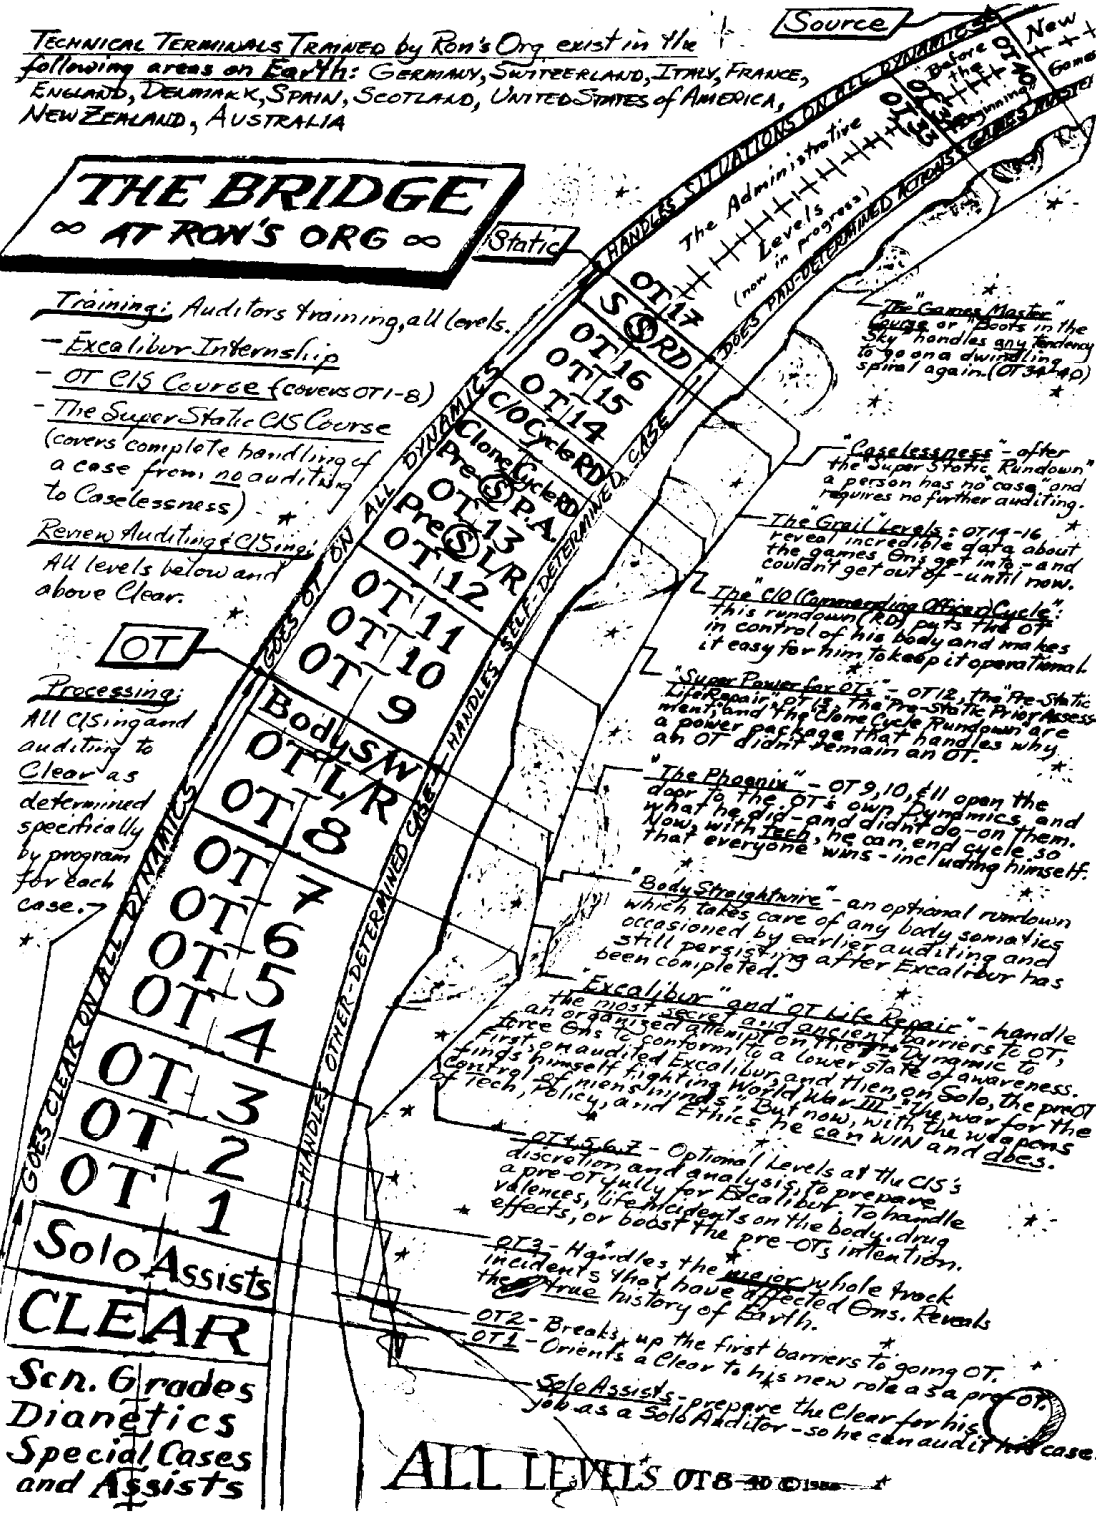 Source
TECHNICAL TERMINALS TRAINED by Ron's Org exist in the
following areas on Earth: GERMANY, SWITZERLAND, ITALY, FRANCE,
ENGLAND, DENMARK, SPAIN, SCOTLAND, UNITED STATES of AMERICA,
NEW ZEALAND, AUSTRALIA
THE BRIDGE
∞ AT RON'S ORG ∞
Static
Training: Auditors training, all levels.
- Excalibur Internship
- OT C/S Course (covers OT1-8)
- The Super Static C/S Course
(covers complete handling of
a case from no auditing
to Caselessness)
Review Auditing & C/Sing:
All levels below and
above Clear.
OT
Processing:
All C/Sing and
auditing to
Clear as
determined
specifically
by program
for each
case.
New
Games
OT 40
Before
the
Beginning
OT 33
The Administrative
Levels
(now in progress)
OT 17
S S RD
OT 16
OT 15
OT 14
C/O Cycle RD
Clone Cycle RD
Pre S P.A.
OT 13
Pre S L/R
OT 12
OT 11
OT 10
OT 9
Body S/W
OT L/R
OT 8
OT 7
OT 6
OT 5
OT 4
OT 3
OT 2
OT 1
Solo Assists
CLEAR
Scn. Grades
Dianetics
Special Cases
and Assists
HANDLES SITUATIONS ON ALL DYNAMICS
DOES PAN-DETERMINED ACTIONS
GAMES MASTER
GOES OT ON ALL DYNAMICS
HANDLES SELF-DETERMINED CASE
GOES CLEAR ON ALL DYNAMICS
HANDLES OTHER-DETERMINED CASE
The "Games Master"
Course or "Boots in the
Sky" handles any tendency
to go on a dwindling
spiral again. (OT 34-40)
"Caselessness" - after
the "Super Static Rundown"
a person has no "case" and
requires no further auditing.
The "Grail" Levels: OT14-16
reveal incredible data about
the games Θns get into - and
couldn't get out of - until now.
The "C/O (Commanding Officer) Cycle":
this rundown (RD) puts the OT
in control of his body and makes
it easy for him to keep it operational.
"Super Power for OTs" - OT12, the "Pre-Static
Life Repair," OT13, The "Pre-Static Prior Assess-
ment," and "the Clone Cycle Rundown" are
a power package that handles why
an OT didn't remain an OT.
"The Phoenix" - OT 9, 10, & 11 open the
door to the OT's own Dynamics, and
what he did - and didn't do - on them.
Now, with Tech, he can end cycle so
that everyone wins - including himself.
"Body Straightwire" - an optional rundown
which takes care of any body somatics
occasioned by earlier auditing and
still persisting after Excalibur has
been completed.
"Excalibur" and "OT Life Repair" - handle
the most secret and ancient barriers to OT,
an organized attempt on the Dynamic to
force Θns to conform to a lower state of awareness.
First, on audited Excalibur, and then, on Solo, the preOT
finds himself fighting World War III: "the war for the
control of mens minds". But now, with the weapons
of Tech, Policy, and Ethics he can WIN and does.
OT4,5,6,7 - Optional Levels at the C/S's
discretion and analysis, to prepare
a pre-OT fully for Excalibur. To handle
valences, life incidents on the body, drug
effects, or boost the pre-OTs intention.
OT3 - Handles the major whole track
incidents that have affected Θns. Reveals
the true history of Earth.
OT2 - Breaks up the first barriers to going OT.
OT1 - Orients a Clear to his new role as a pre-OT.
Solo Assists - prepare the Clear for his
job as a Solo Auditor - so he can audit his case.
ALL LEVELS OT8-40 ©